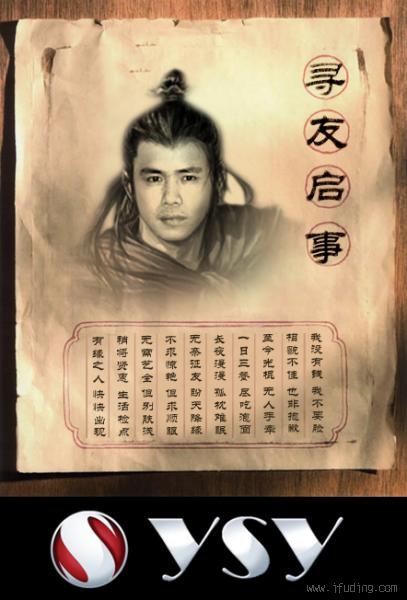 寻友启事
我没有钱 我不要脸
相貌不佳 也非抱歉
至今光棍 无人手牵
一日三餐 尽吃泡面
长夜漫漫 孤枕难眠
无奈征友 盼天降缘
不求惊艳 但求顺眼
无需艺全 但别肤浅
稍将贤惠 生活检点
有缘之人 快快出现
YSY
www.jfuding.com